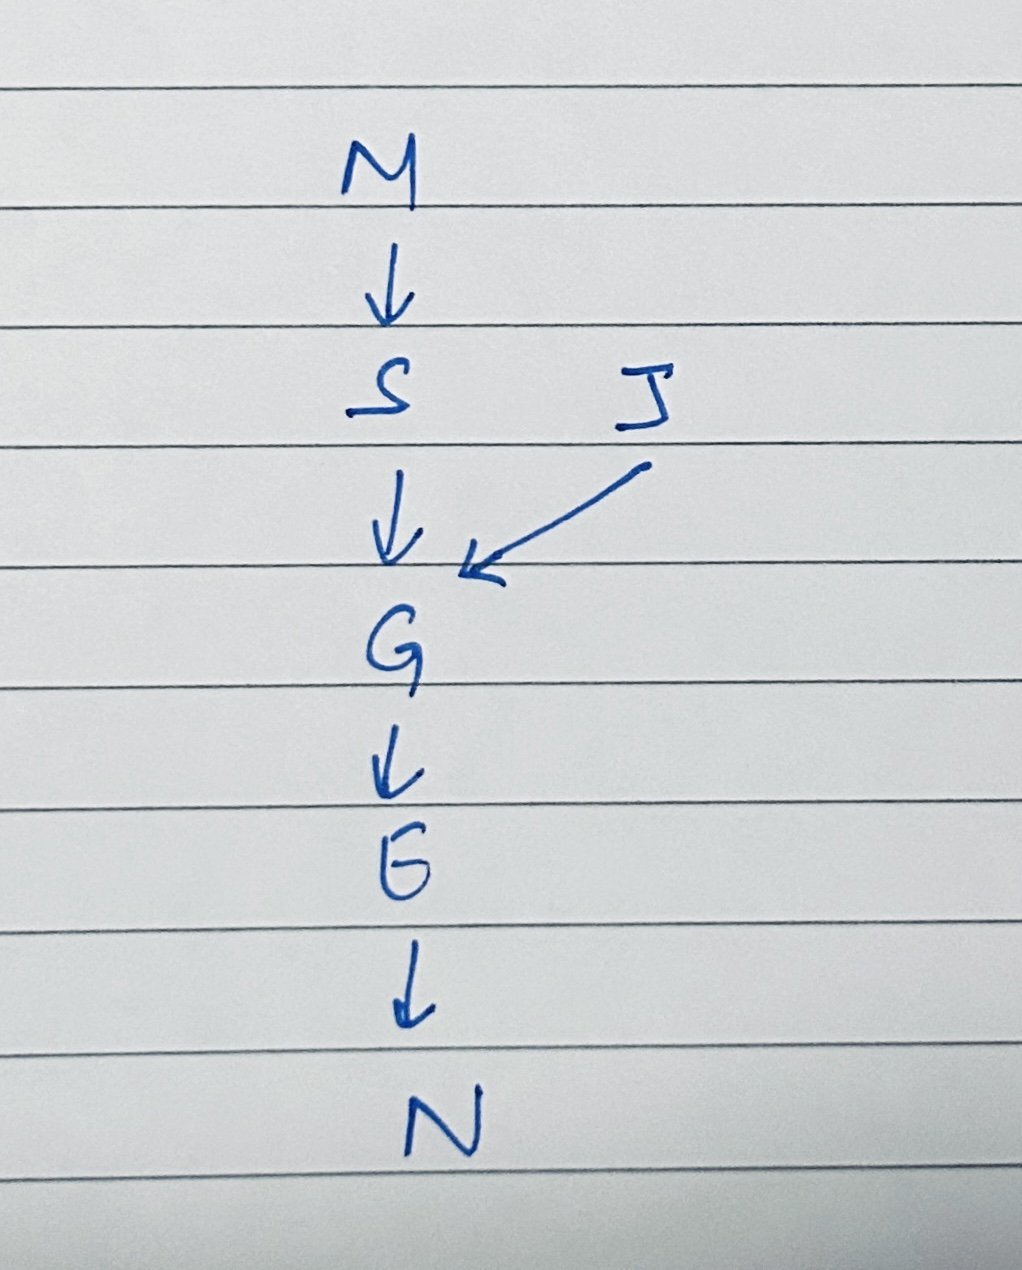 M
↓
S J
↓ ↙
G
↓
E
↓
N